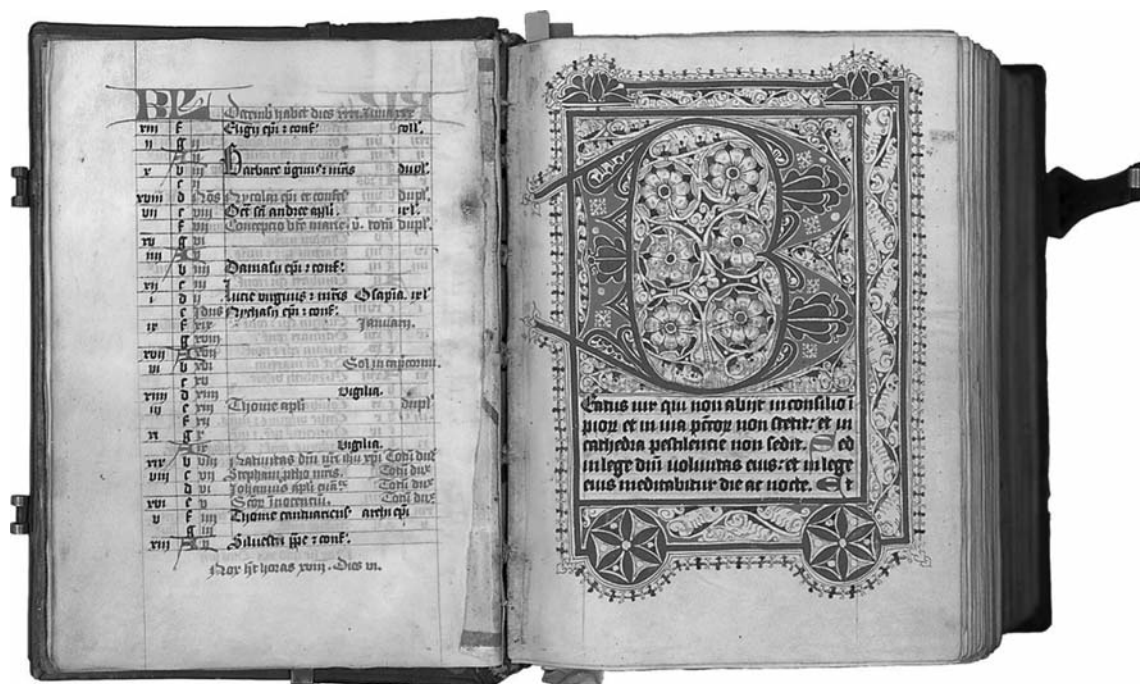 KL Decemb habet dies
xiii f Eligii epi ⁊ conf. coll'.
ii g iii
A
x b iii Barbare uginis ⁊ mris dupl'.
c ii
xviii d Nõs Nycolai epi et confes dupl'.
vii e viii Oct sci andree apli.
f vii Concepcio bte marie. v. dupl'.
xv g vi
iiii A
b iiii Damasii epi ⁊ conf.
xii c iii
i d ii Lucie uirginis ⁊ mris
e Jdus Nychasii epi ⁊ conf.
ix f xix Januarii.
g xviii
xvii A xvii
vi b xvi Sol in capcornu.
c xv
xiiii d xiiii Vigilia.
iii e xiii Thome apli dupl'
f xii
xi g xi
A Vigilia.
xix b viii Natiuitas dni nri ihu xpi Totu dux
viii c vii Stephani ptho mris. Totu dux
d vi Johannis apli Totu dux
xvi e v Scor inocentu. Totu dux
v f iiii Thome cantuariens archi epi
g iii
xiii A ii Siluestri ppe ⁊ conf.
Nox ht horas xviii. Dies vi.
Beatus uir qui non abiit in consilio i
pior et in uia pctor non stetit: et in
cathedra pestilencie non sedit. Sed
in lege dni uoluntas eius: et in lege
eius meditabitur die ac nocte. Et